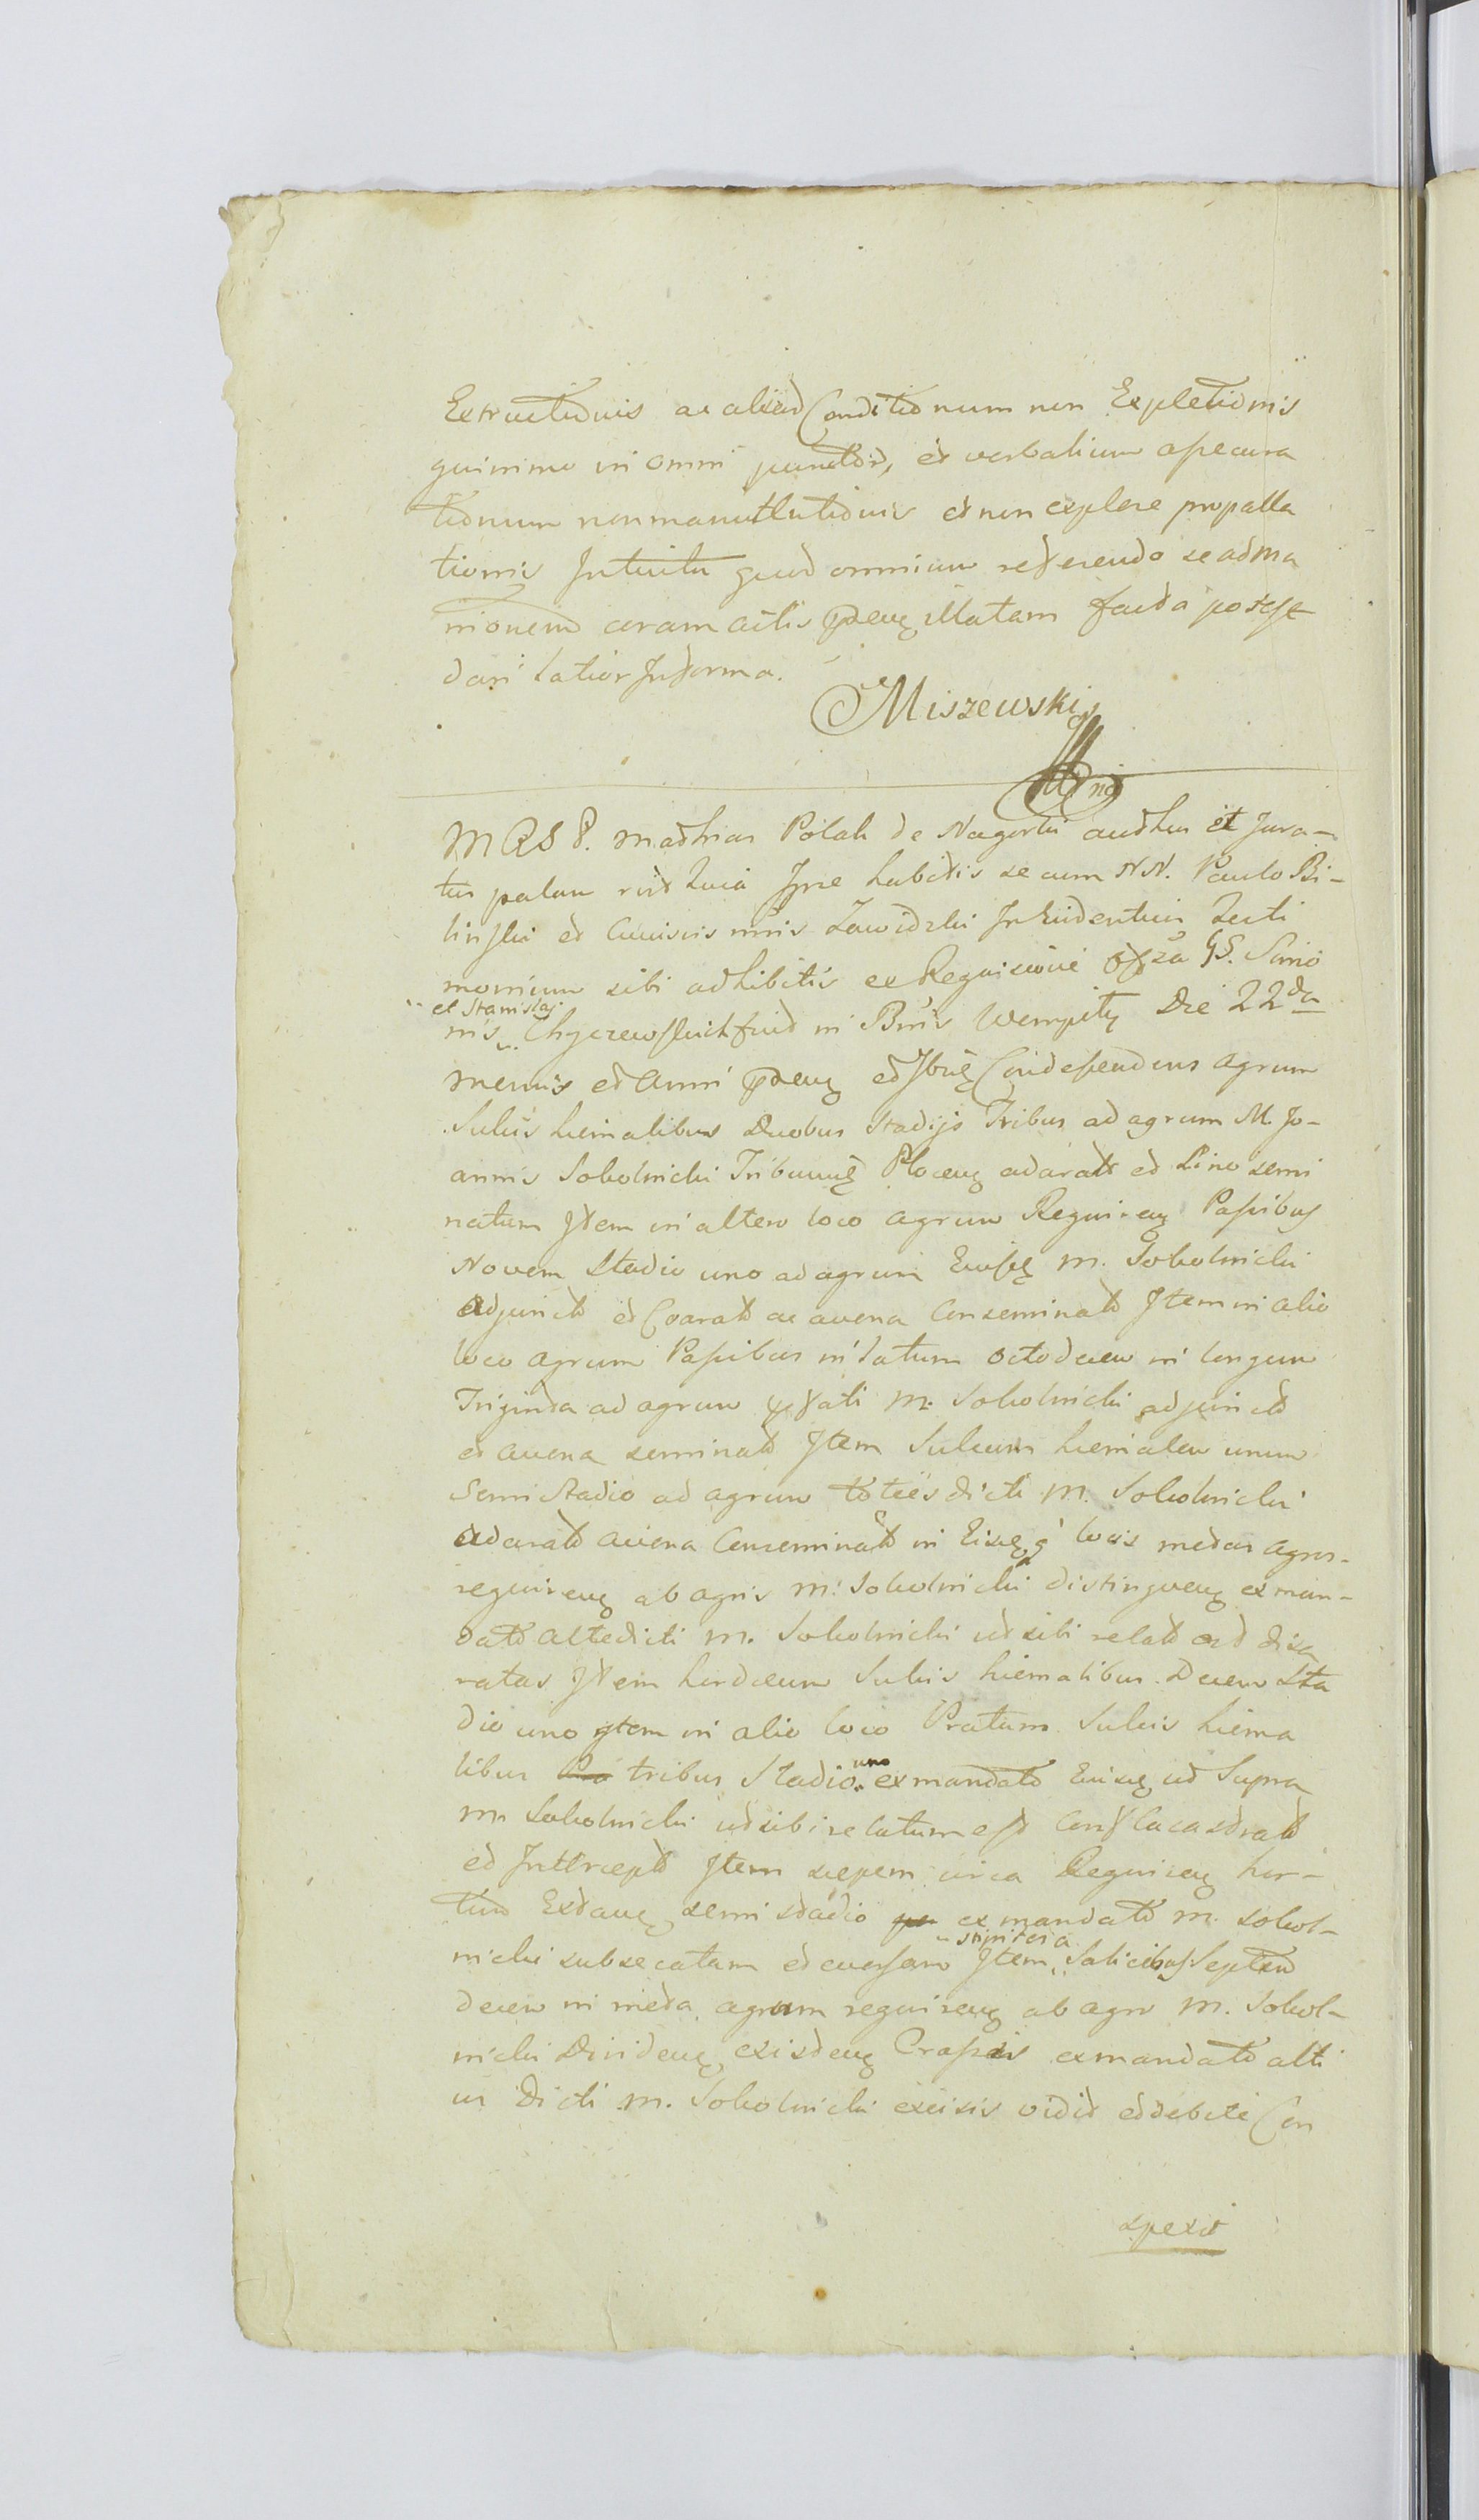 Extructionis ac aliard Conditionum non Expletionis
quinimo in omni punctor, et verbalium assecura
tionum non manutentionis et non explere propalla
tionis Intuitu quod omnium referendo se ad Ma
nionem coram actis praeng illatam facta potest
dari latior Informa.
Miszewski
MRSP. Mathias Polak de Nagorki authen et Jura-
tus palam rectt huia Ipse habitis secum NN. Paulo Bi-
linski et Zawidzki In Evidentius Testi
monium sibi adhibitis ex Requisicione GS. Simo
et Stanislaj
nis Chyczewskich fuit in Bonis Wempiły Die 22da
mensis et Anni praeng et Ibidem Condescendens agrum
Sulcis hiemalibus Duobus Stadijs Tribus ad agrum M. Jo-
annis Sokolnicki Tribunus Plocens adarato et Lino semi
natum Item in altero loco agrum Requirens Passibus
Novem Stadio uno ad agrum Eiusdem M. Sokolnicki
Adjuncto et Coarato ac avena Conseminato Item in alio
loco agrum Passibus in latum octodecem in longum
Triginta ad agrum praefati M. Sokolnicki adjuncto
et avena seminato Item Sulcum hiemalem unum
Semi Stadio ad agrum toties dicti M. Sokolnicki
Adarato avena Conseminato in Eisdem locis metas agros-
requirens ab agris M. Sokolnicki distingvens ex man-
dato altedicti M. Sokolnicki ut sibi relato est disa
ratas Item hordeum Sulcis hiematibus Decem Sta
dio uno Item in alio loco Pratum Sulcis hiema
libus tribus Stadio uno ex mandato Eiusdem ut Supra
M. Sokolnicki ut sibi relatum est
et Intercepto Item sepem circa Requirens hor-
tum Extans semi stadio ex mandato M. Sokol-
nicki subsecatam et eversam Item Salicibus Septem
decem in meta agrum requirens ab agro M. Sokol-
nicki Dividens, existens Crassis ex mandato alti
us Dicti M. Sokolnicki excisis vidit et debite Con
spexit